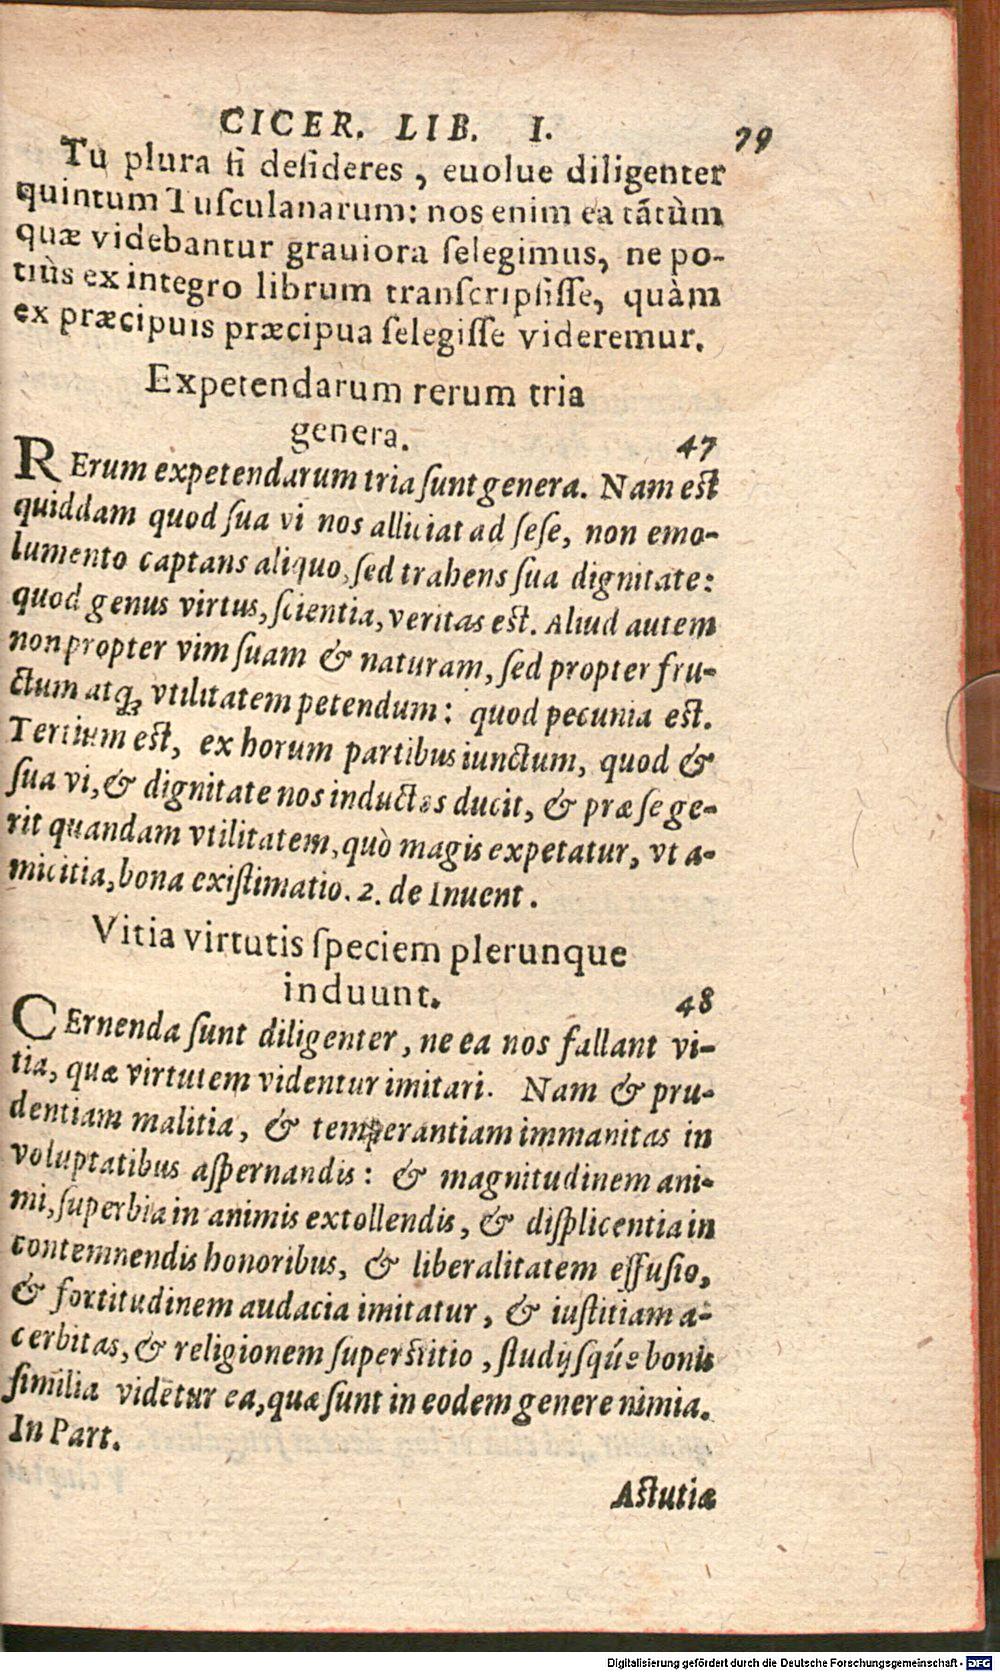 CICER. LIB. I. 79
Tu plura si desideres, euolue diligenter
quintum Tusculanarum: nos enim ea tãtùm
quæ videbantur grauiora selegimus, ne po-
tiùs ex integro librum transcripsisse, quàm
ex præcipuis præcipua selegisse videremur.
Expetendarum rerum tria
genera. 47
RErum expetendarum tria sunt genera. Nam est
quiddam quod sua vi nos alliciat ad sese, non emo-
lumento captans aliquo, sed trahens sua dignitate:
quod genus virtus, scientia, veritas est. Aliud autem
non propter vim suam & naturam, sed propter fru-
ctum atq; vtilitatem petendum: quod pecunia est.
Tertium est, ex horum partibus iunctum, quod &
sua vi, & dignitate nos inductos ducit, & præ se ge-
rit quandam vtilitatem, quò magis expetatur, vt a-
micitia, bona existimatio. 2. de Inuent.
Vitia virtutis speciem plerunque
induunt. 48
CErnenda sunt diligenter, ne ea nos fallant vi-
tia, quæ virtutem videntur imitari. Nam & pru-
dentiam malitia, & temperantiam immanitas in
voluptatibus aspernandis: & magnitudinem ani-
mi, superbia in animis extollendis, & displicentia in
contemnendis honoribus, & liberalitatem effusio,
& fortitudinem audacia imitatur, & iustitiam a-
cerbitas, & religionem superstitio, studijsq́ue bonis
similia vidētur ea, quæ sunt in eodem genere nimia.
In Part.
Astutiæ
Digitalisierung gefördert durch die Deutsche Forschungsgemeinschaft - DFG